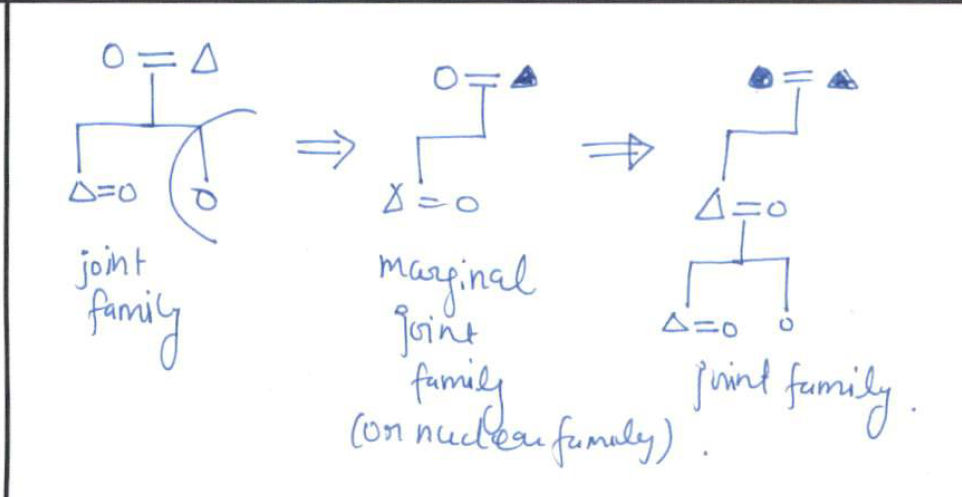 joint
family
marginal
joint
family
(or nuclear family).
joint family.